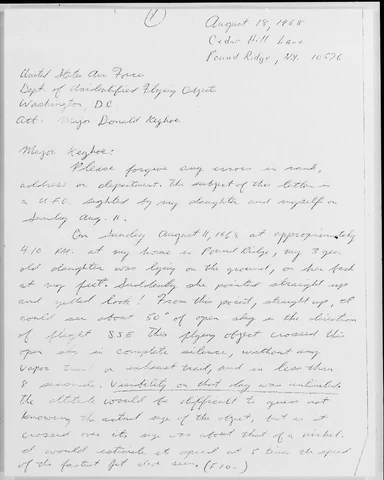 (1)
August 18, 1968
Cedar Hill Lane
Pound Ridge, N.Y. 10576
United States Air Force
Dept. of Unidentified Flying Object
Washington, D.C.
Att: Major Donald Keyhoe
Major Keyhoe:
Please forgive any errors in rank,
address or department. The subject of this letter is
a U.F.O. sighted by my daughter and myself on
Sunday Aug. 11.
On Sunday August 11, 1968 at approximately
4:10 P.M. at my home in Pound Ridge, my 3 year
old daughter was lying on the ground, on her back
at my feet. Suddenly she pointed straight up
and yelled look! From this point, straight up, I
could see about 50° of open sky in the direction
of flight SSE this flying object crossed this
open sky in complete silence, without any
vapor trail or exhaust trail, and in less than
8 seconds. Visibility on that day was unlimited.
the altitude would be difficult to guess not
knowing the actual size of the object, but as it
crossed over its size was about that of a nickel.
I would estimate its speed at 5 times the speed
of the fastest jet I've seen.